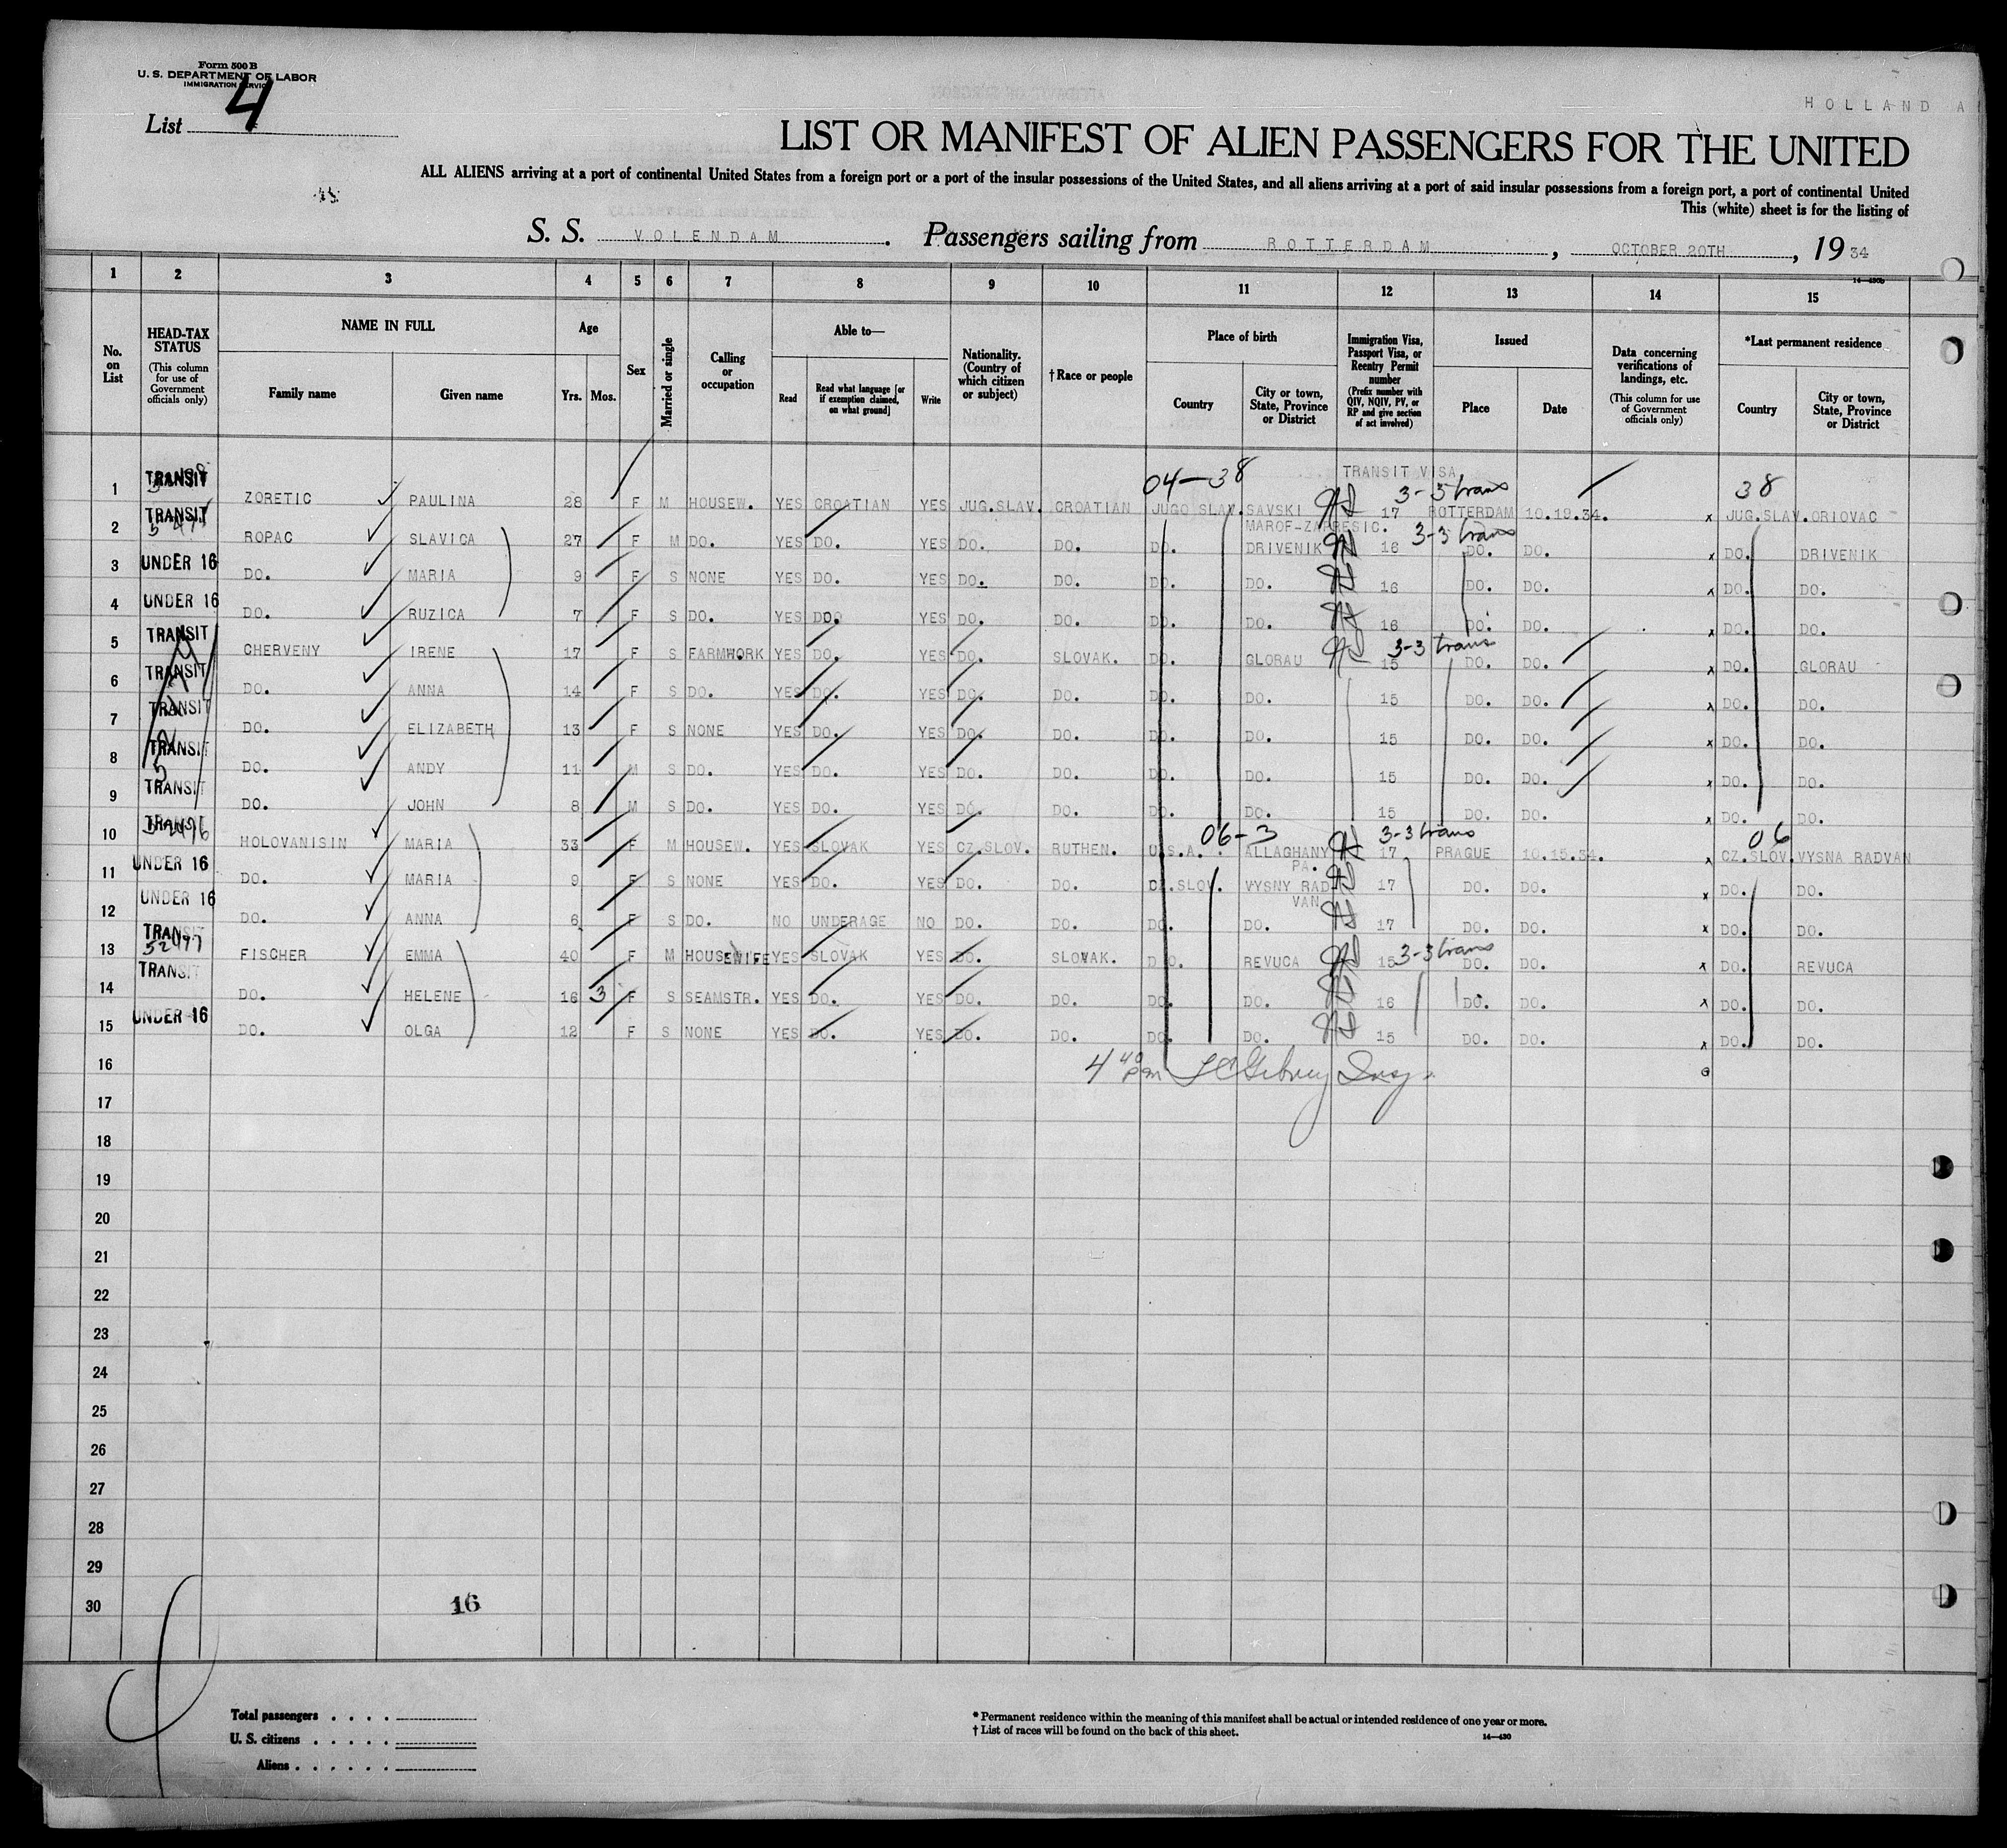 Form 500 B
U. S. DEPARTMENT OF LABOR
IMMIGRATION SERVICE
List 4
HOLLAND A
LIST OR MANIFEST OF ALIEN PASSENGERS FOR THE UNITED
ALL ALIENS arriving at a port of continental United States from a foreign port or a port of the insular possessions of the United States, and all aliens arriving at a port of said insular possessions from a foreign port, a port of continental United
This (white) sheet is for the listing of
S. S. VOLENDAM. Passengers sailing from ROTTERDAM, OCTOBER 20TH, 19 34
14—430b
1 2 3 4 5 6 7 8 9 10 11 12 13 14 15
No. on List
HEAD-TAX STATUS (This column for use of Government officials only)
NAME IN FULL
Family name Given name
Age
Yrs. Mos.
Sex
Married or single
Calling or occupation
Able to—
Read
Read what language [or if exemption claimed, on what ground]
Write
Nationality. (Country of which citizen or subject)
† Race or people
Place of birth
Country
City or town, State, Province or District
Immigration Visa, Passport Visa, or Reentry Permit number (Prefix number with QIV, NQIV, PV, or RP and give section of act involved)
Issued
Place Date
Data concerning verifications of landings, etc. (This column for use of Government officials only)
*Last permanent residence
Country
City or town, State, Province or District
04—38 TRANSIT VISA 3-3 trans 38
1 TRANSIT ZORETIC PAULINA 28 F M HOUSEW. YES CROATIAN YES JUG.SLAV. CROATIAN JUGO SLAV. SAVSKI MAROF-ZAPRESIC. 17 ROTTERDAM 10.19.34. x JUG.SLAV. ORIOVAC
3-3 trans
2 TRANSIT ROPAC SLAVICA 27 F M DO. YES DO. YES DO. DO. DO. DRIVENIK 16 DO. DO. x DO. DRIVENIK
3 UNDER 16 DO. MARIA 9 F S NONE YES DO. YES DO. DO. DO. DO. 16 DO. DO. x DO. DO.
4 UNDER 16 DO. RUZICA 7 F S DO. YES DO. YES DO. DO. DO. DO. 16 DO. DO. x DO. DO.
3-3 trans
5 TRANSIT CHERVENY IRENE 17 F S FARMWORK YES DO. YES DO. SLOVAK. DO. GLORAU 15 DO. DO. x DO. GLORAU
6 TRANSIT DO. ANNA 14 F S DO. YES DO. YES DO. DO. DO. DO. 15 DO. DO. x DO. DO.
7 TRANSIT DO. ELIZABETH 13 F S NONE YES DO. YES DO. DO. DO. DO. 15 DO. DO. x DO. DO.
8 TRANSIT DO. ANDY 11 M S DO. YES DO. YES DO. DO. DO. DO. 15 DO. DO. x DO. DO.
9 TRANSIT DO. JOHN 8 M S DO. YES DO. YES DO. DO. DO. DO. 15 DO. DO. x DO. DO.
06-3 3-3 trans 06
10 TRANSIT HOLOVANISIN MARIA 33 F M HOUSEW. YES SLOVAK YES CZ.SLOV. RUTHEN. U.S.A. ALLAGHANY PA. 17 PRAGUE 10.15.34. x CZ.SLOV. VYSNA RADVAN
11 UNDER 16 DO. MARIA 9 F S NONE YES DO. YES DO. DO. CZ.SLOV. VYSNY RADVAN 17 DO. DO. x DO. DO.
12 UNDER 16 DO. ANNA 6 F S DO. NO UNDERAGE NO DO. DO. DO. DO. 17 DO. DO. x DO. DO.
3-3 trans
13 TRANSIT FISCHER EMMA 40 F M HOUSEWIFE YES SLOVAK YES DO. SLOVAK. DO. REVUCA 15 DO. DO. x DO. REVUCA
14 TRANSIT DO. HELENE 16 3 F S SEAMSTR. YES DO. YES DO. DO. DO. DO. 16 DO. DO. x DO. DO.
15 UNDER 16 DO. OLGA 12 F S NONE YES DO. YES DO. DO. DO. DO. 15 DO. DO. x DO. DO.
16 4 40 pm Insp.
17
18
19
20
21
22
23
24
25
26
27
28
29
30
16
Total passengers . . . .
U. S. citizens . . . . .
Aliens . . . . . .
* Permanent residence within the meaning of this manifest shall be actual or intended residence of one year or more.
† List of races will be found on the back of this sheet.
14—430